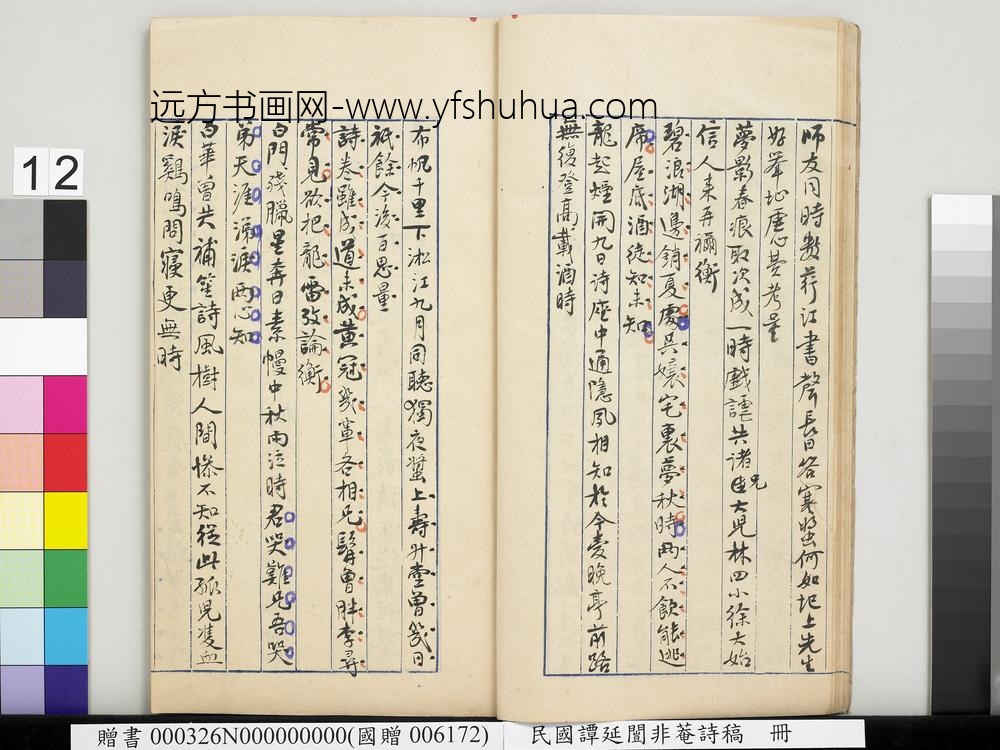 远方书画网-www.yfshuhua.com
師友同時數荐江書聲長日答寒螿何如圯上先生
好举址虚心共考量
夢影春痕取次成一時戲謔共諸兄大兒林四小徐大始
信人来弄禰衡
碧浪湖邊銷夏處吳孃宅裏夢秋時兩人不飲能逃
席屋底酒徒知未知
龍起煙開九日诗座中通隱夙相知於今愛晚亭前路
無復登高載酒時
布帆千里下淞江九月同聽獨夜螿上壽升堂曾幾日
祇餘今後百思量
詩卷雖成道未成黄冠幾輩各相兄髯曾胖李尋
常見欲把龍雷孜論衡
白門殘臘星奔日素幔中秋雨泣時君哭難兄吾哭
弟天涯涕淚兩心知
白華曾共補笙詩風樹人間慘不知從此孤兒隻血
淚鷄鳴問寢更無時
12
贈書 000326N000000000(國贈 006172) 民國譚延闓非菴詩稿 冊